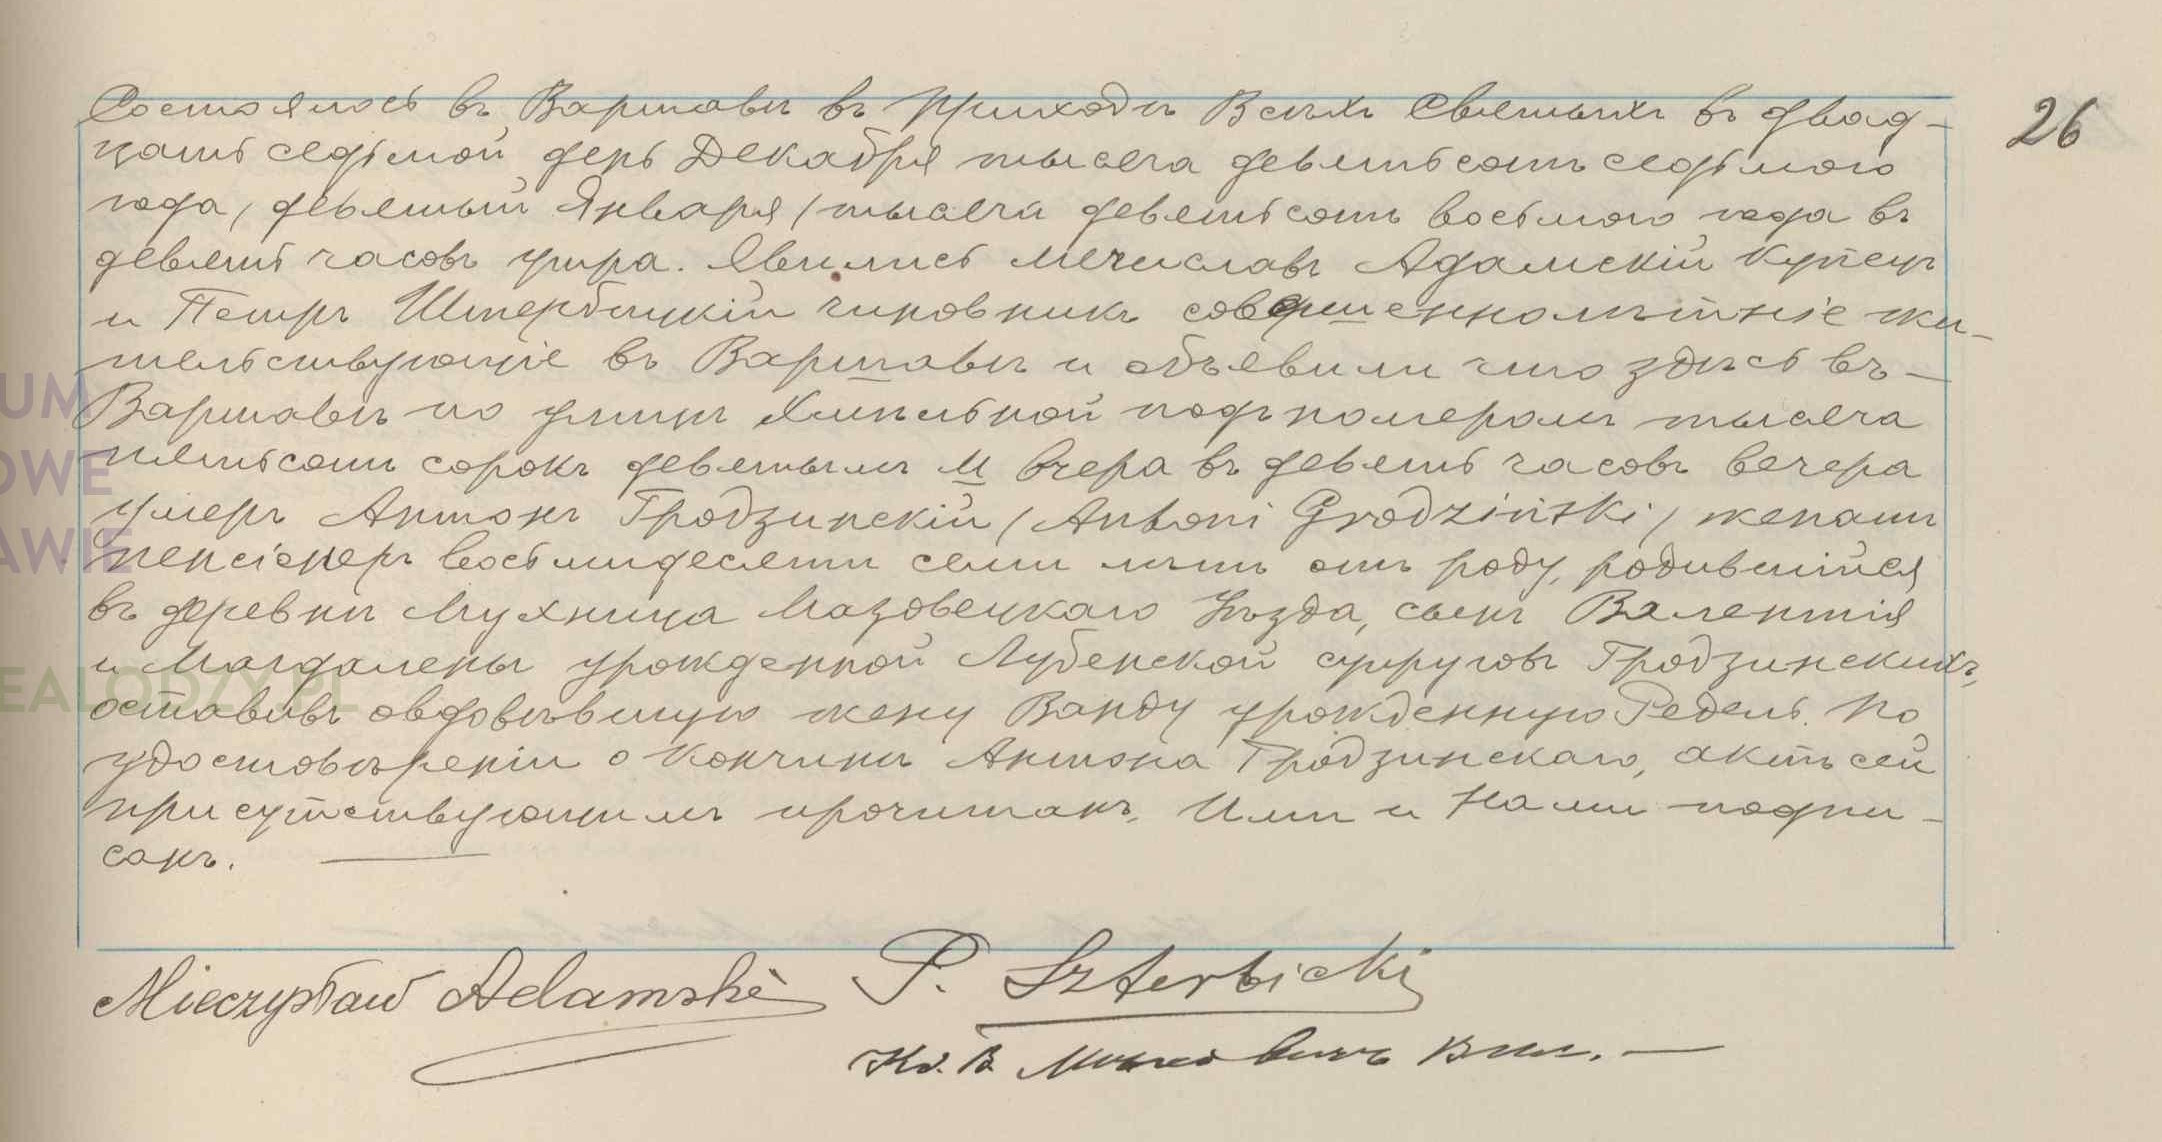 26
Состоялось въ Варшавѣ въ Приходѣ Всѣхъ Святыхъ въ двад-
цать седьмой день Декабря тысяча девятьсотъ седьмого
года, /девятый Января/ тысяча девятьсотъ восьмого года въ
девять часовъ утра. Явились Мечиславъ Адамскій купецъ
и Петръ Штербицкій чиновникъ совершеннолѣтніе жи-
тельствующіе въ Варшавѣ и объявили что здѣсь въ-
Варшавѣ по улицѣ Хмѣльной подъ номеромъ тысяча
пятьсотъ сорокъ девятымъ М вчера въ девять часовъ вечера
умеръ Антонъ Гродзинскій /Antoni Grodziński/ женатъ
пенсіонеръ восьмидесяти семи лѣтъ отъ роду, родившійся
въ деревнѣ Мухница Мазовецкаго Уѣзда, сынъ Валентія
и Магдалены урожденной Лубенской супруговъ Гродзинскихъ,
оставивъ овдовѣвшую жену Ванду урожденную Редель. По
удостовѣреніи о кончинѣ Антона Гродзинскаго, актъ сей
присутствующимъ прочитанъ, Ими и Нами подпи-
санъ.
Mieczysław Adamski P. Szterbicki
Кс. В.